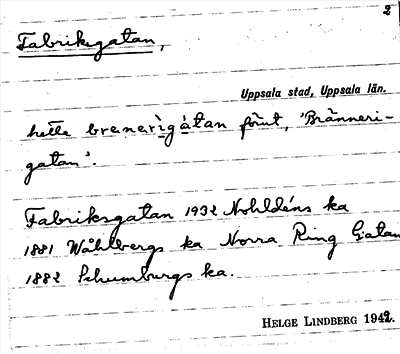 2
Fabriksgatan,
Uppsala stad, Uppsala län.
hette brenerìgátan förut, "Bränneri-
gatan".
Fabriksgatan 1932 Nohldéns ka
1881 Wåhlbergs ka Norra Ring Gatan
1882 Schumburgs ka.
HELGE LINDBERG 1942.